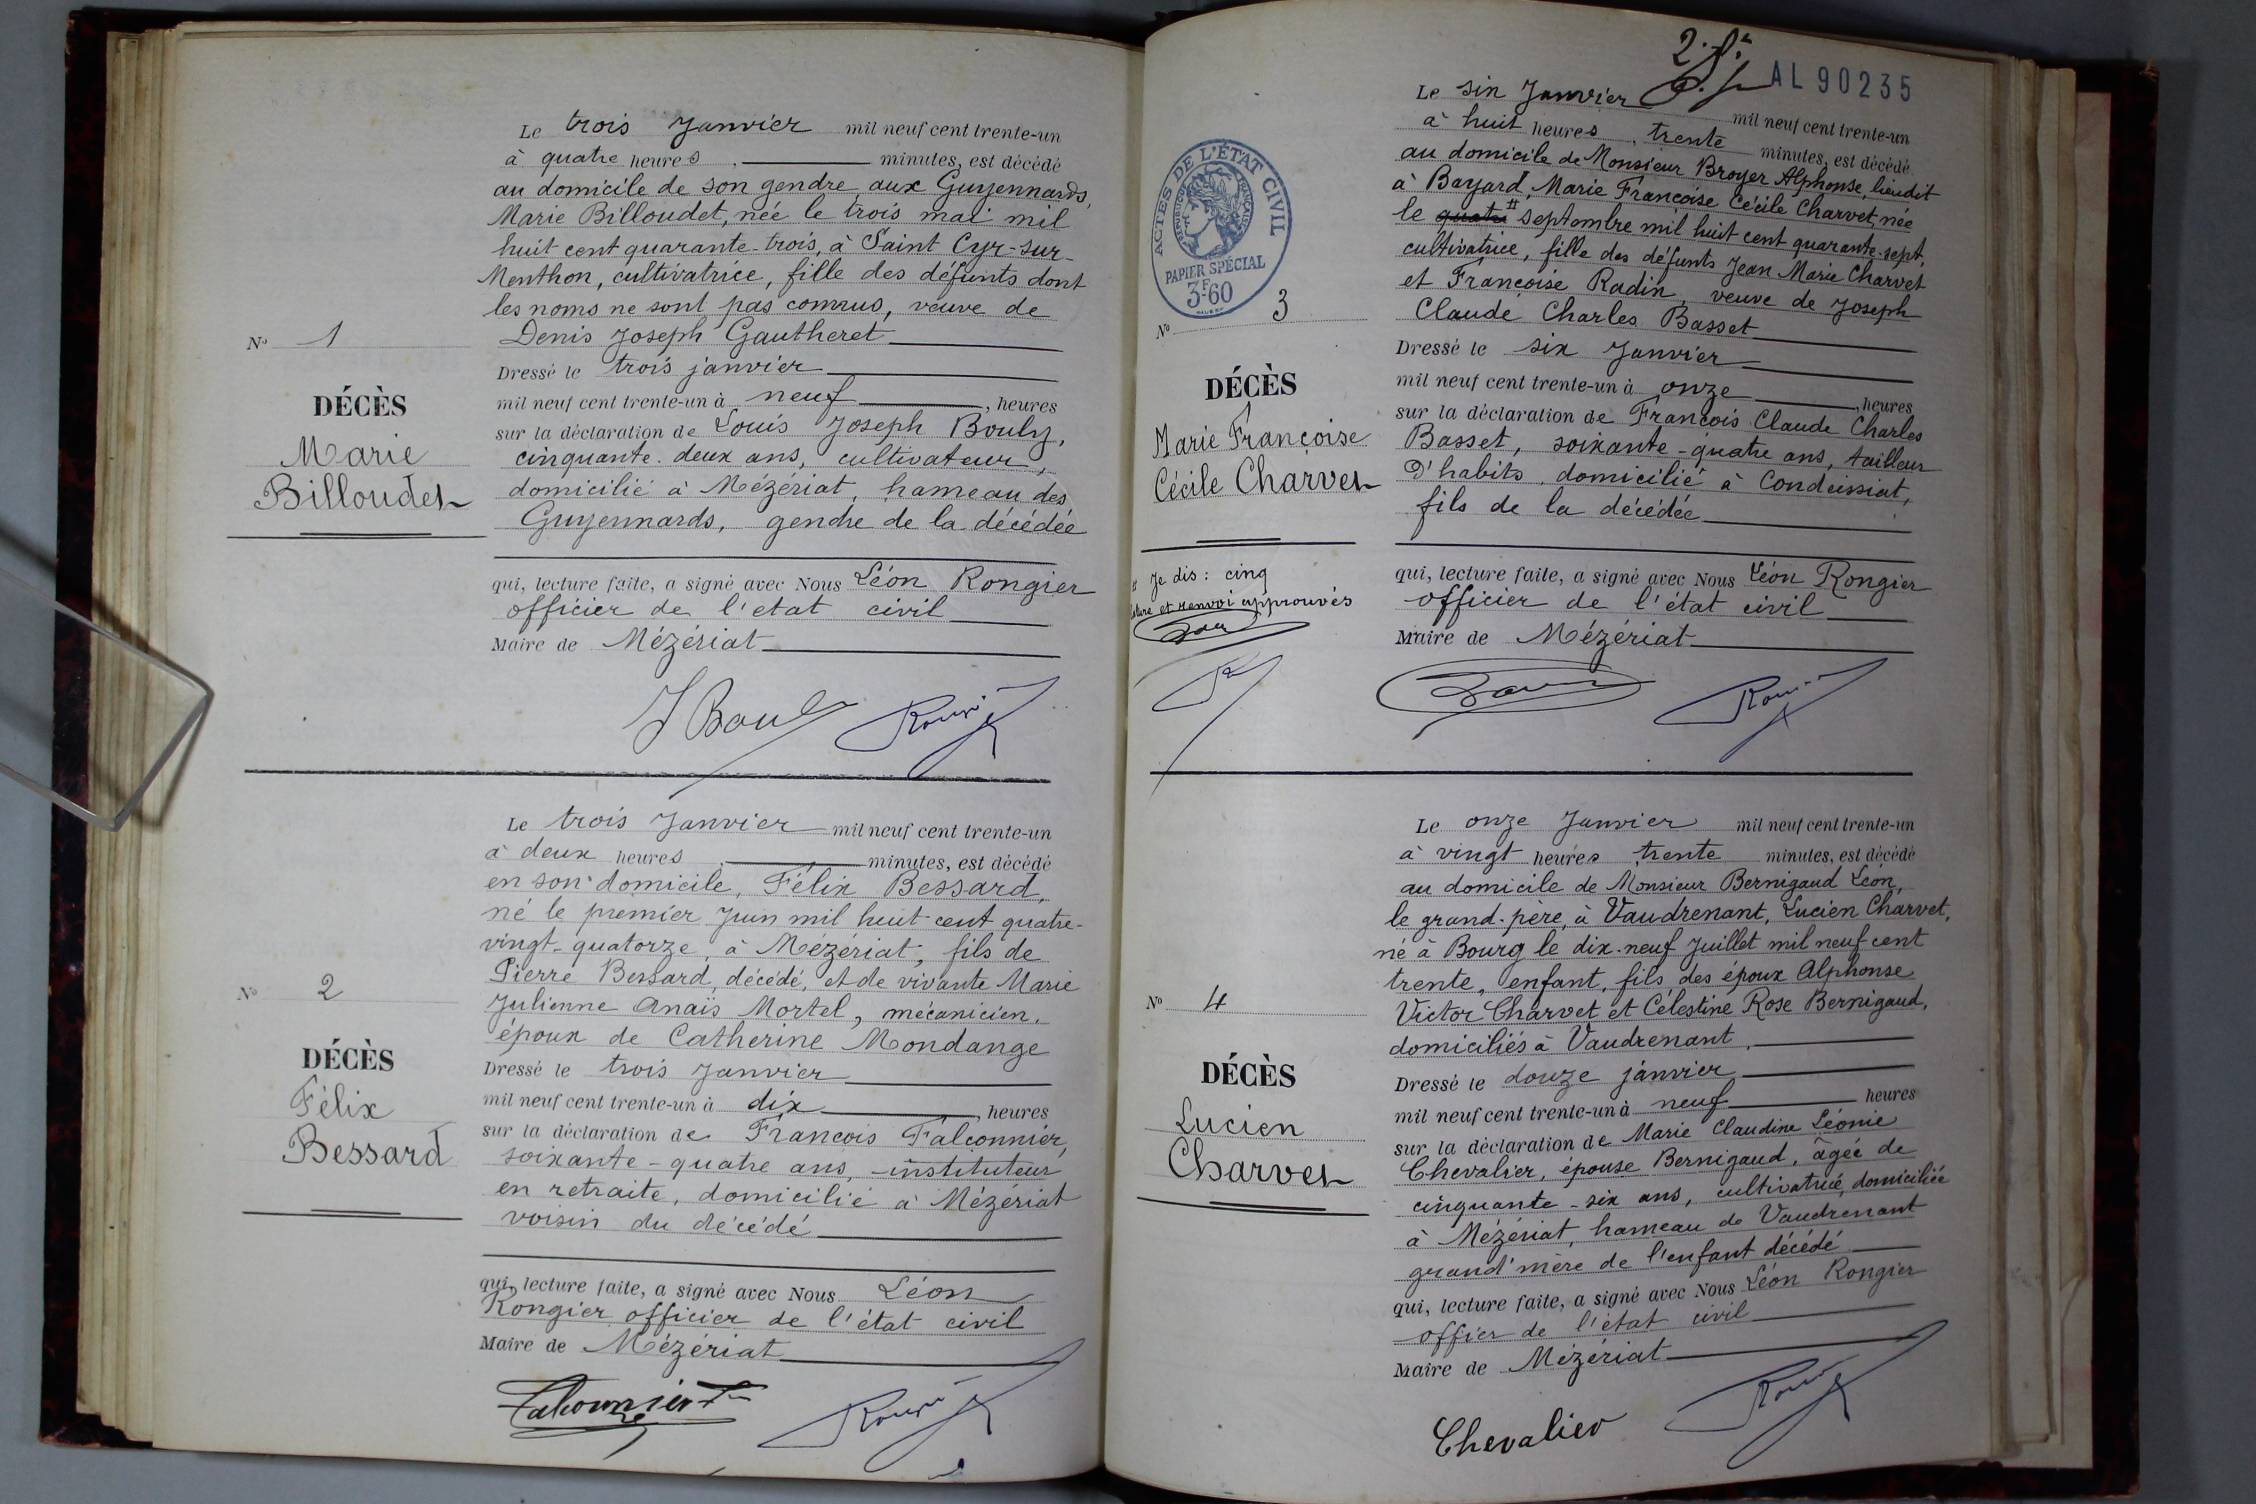 Le trois Janvier mil neuf cent trente-un
à quatre heures minutes, est décédé
au domicile de son gendre aux Guyennards,
Marie Billoudet, née le trois mai mil
huit cent quarante-trois, à Saint Cyr-sur-
Menthon, cultivatrice, fille des défunts dont
les noms ne sont pas connus, veuve de
Denis Joseph Gautheret
N° 1
DÉCÈS
Marie
Billoudet
Dressé le trois janvier
mil neuf cent trente-un à neuf, heures
sur la déclaration de Louis Joseph Bouly,
cinquante-deux ans, cultivateur,
domicilié à Mézériat, hameau des
Guyennards, gendre de la décédée
qui, lecture faite, a signé avec Nous Léon Rongier
officier de l'etat civil
Maire de Mézériat
Le trois Janvier mil neuf cent trente-un
à deux heures minutes, est décédé
en son domicile, Félix Bessard,
né le premier Juin mil huit cent quatre-
vingt-quatorze, à Mézériat, fils de
Pierre Bessard, décédé, et de vivante Marie
Julienne Anaïs Mortel, mécanicien,
époux de Catherine Mondange
N° 2
DÉCÈS
Félix
Bessard
Dressé le trois Janvier
mil neuf cent trente-un à dix, heures
sur la déclaration de François Falconnier,
soixante-quatre ans, instituteur
en retraite, domicilié à Mézériat
voisin du décédé
qui, lecture faite, a signé avec Nous Léon
Rongier officier de l'état civil
Maire de Mézériat
AL 90235
ACTES DE L'ÉTAT CIVIL
RÉPUBLIQUE FRANÇAISE
PAPIER SPÉCIAL
3F60
Le six Janvier mil neuf cent trente-un
à huit heures trente minutes, est décédé
au domicile de Monsieur Broyer Alphonse, lieudit
à Bayard, Marie Françoise Cécile Charvet, née
le quatre # septembre mil huit cent quarante-sept,
cultivatrice, fille des défunts Jean Marie Charvet
et Françoise Radin, veuve de Joseph
Claude Charles Basset
N° 3
DÉCÈS
Marie Françoise
Cécile Charvet
# Je dis : cinq
et renvoi approuvés
Dressé le six Janvier
mil neuf cent trente-un à onze, heures
sur la déclaration de François Claude Charles
Basset, soixante-quatre ans, tailleur
d'habits, domicilié à Condeissiat,
fils de la décédée
qui, lecture faite, a signé avec Nous Léon Rongier
officier de l'état civil
Maire de Mézériat
Le onze Janvier mil neuf cent trente-un
à vingt heures trente minutes, est décédé
au domicile de Monsieur Bernigaud Léon,
le grand-père, à Vaudrenant, Lucien Charvet,
né à Bourg le dix-neuf Juillet mil neuf cent
trente, enfant, fils des époux Alphonse
Victor Charvet et Célestine Rose Bernigaud,
domiciliés à Vaudrenant,
N° 4
DÉCÈS
Lucien
Charvet
Dressé le douze janvier
mil neuf cent trente-un à neuf heures
sur la déclaration de Marie Claudine Léonie
Chevalier, épouse Bernigaud, âgée de
cinquante-six ans, cultivatrice, domiciliée
à Mézériat, hameau de Vaudrenant
grand'mère de l'enfant décédé
qui, lecture faite, a signé avec Nous Léon Rongier
offier de l'état civil
Maire de Mézériat
Chevalier